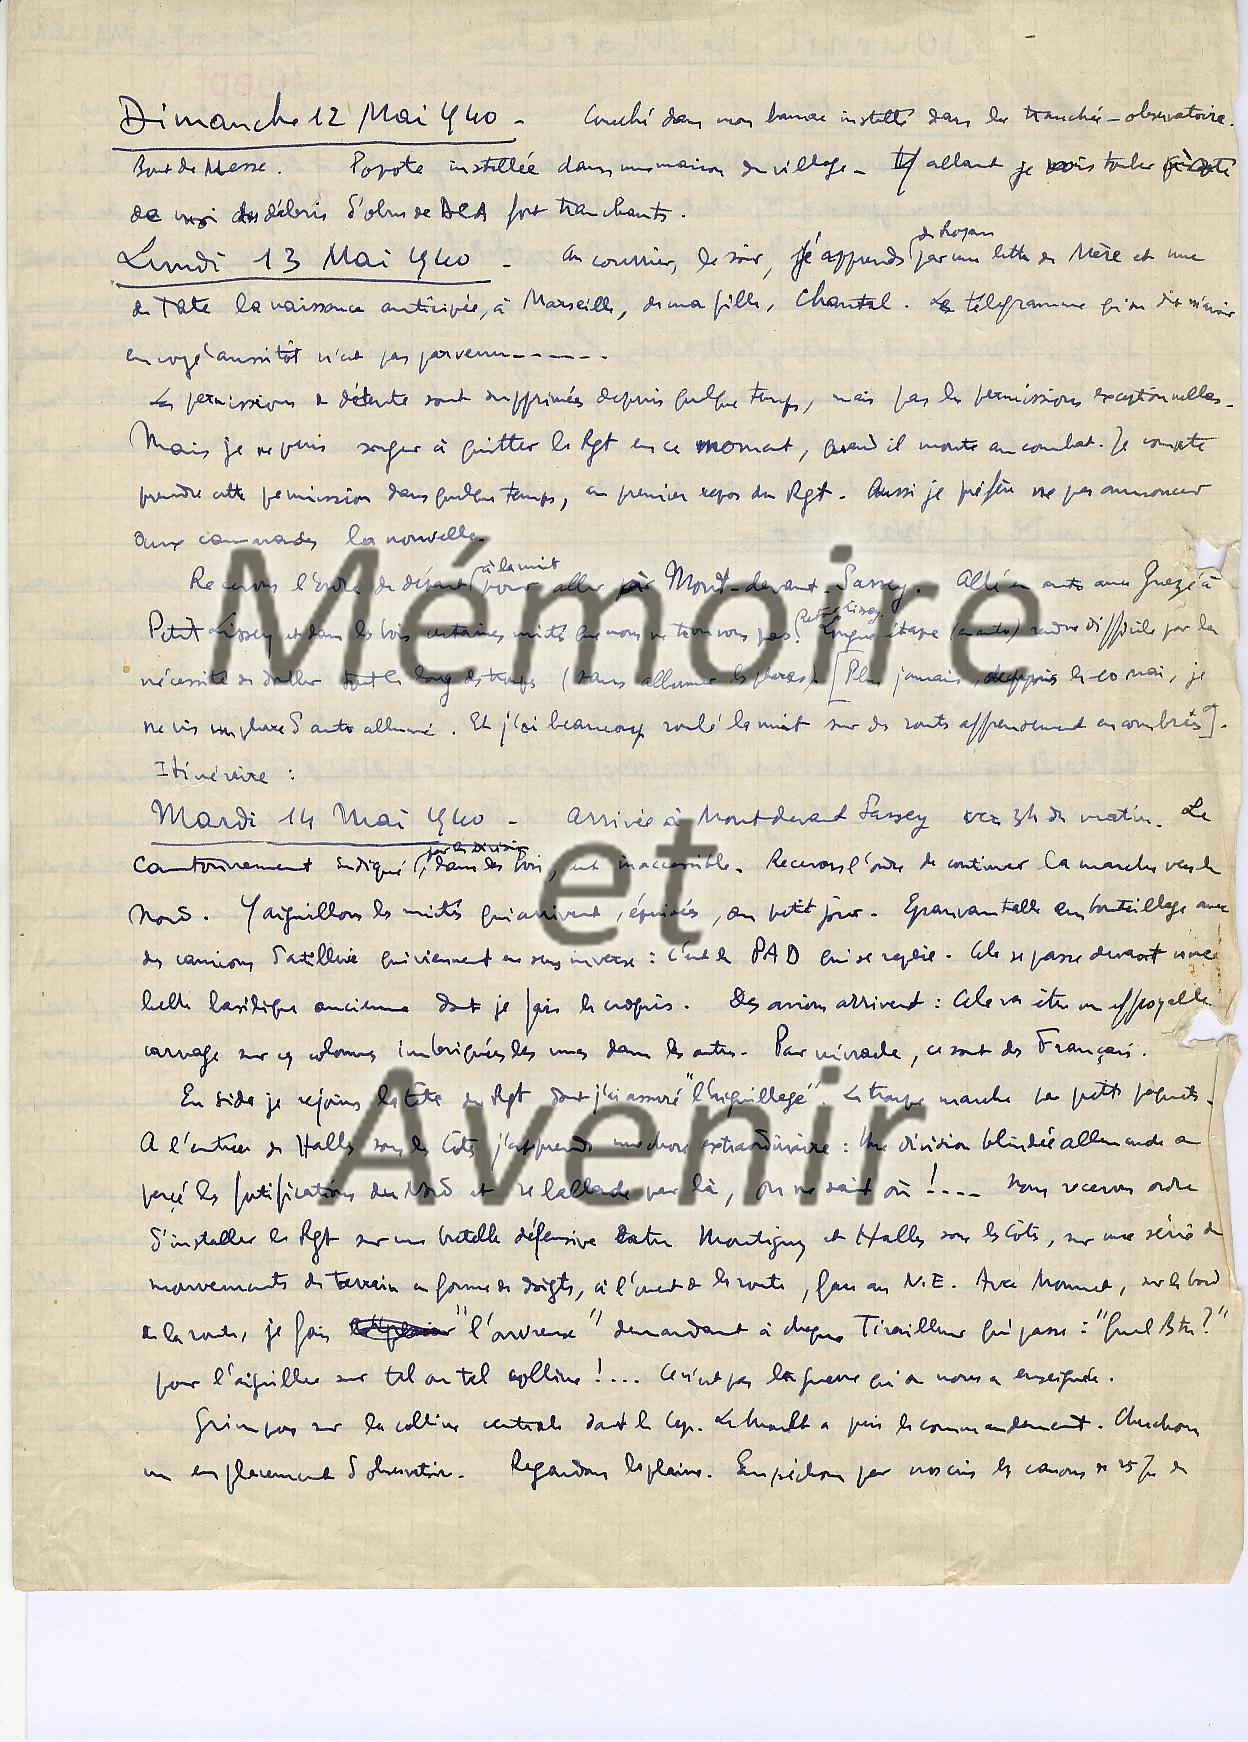 Dimanche 12 Mai 1940 - Couché dans mon hamac installé dans la tranchée-observatoire.
Bout de Messe. Popote installée dans une maison du village - Y allant je vois tomber
de moi des débris d'obus de DCA fort tranchants.
Lundi 13 Mai 1940 - Au courrier, le soir, j'apprends (de Royan) par une lettre de Mère et une
de Tate la naissance anticipée, à Marseille, de ma fille, Chantal. Le télégramme qu'on dit m'avoir
envoyé aussitôt n'est pas parvenu------.
Les permissions de détente sont supprimées depuis quelque temps, mais pas les permissions exceptionnelles.
Mais je ne puis songer à quitter le Rgt en ce moment, quand il monte au combat. Je compte
prendre cette permission dans quelque temps, au premier repos du Rgt. Aussi je préfère ne pas annoncer
aux camarades la nouvelle.
Recevons l'ordre de départ (à la nuit) pour aller à Mont-devant-Sassey. Allé en auto avec à
Petit Lissey et dans les bois certaines unités que nous ne trouvons pas. (Petit Lissey) Longue étape (en auto) rendue difficile par la
nécessité de doubler tout le long des troupes (sans allumer les phares). [Plus jamais, depuis le 10 mai, je
ne vis un phare d'auto allumé. Et j'ai beaucoup roulé la nuit sur des routes affreusement encombrées].
Itinéraire :
Mardi 14 Mai 1940 - Arrivée à Mont devant Sassey vers 3h du matin. Le
cantonnement indiqué (par la Division), dans les bois, est inaccessible. Recevons l'ordre de continuer la marche vers le
Nord. Y aiguillons les unités qui arrivent, épuisées, au petit jour. Epouvantable embouteillage avec
des camions d'artillerie qui viennent en sens inverse : c'est le PAD qui se replie. Cela se passe devant une
belle basilique ancienne dont je fais le croquis. Des avions arrivent : Cela va être un effroyable
carnage sur ces colonnes imbriquées les unes dans les autres. Par miracle, ce sont des Français.
En side je rejoins la tête du Rgt dont j'ai assuré "l'aiguillage". La troupe marche par petits paquets.
A l'entrée de Halles sous les Côtes j'apprends une chose extraordinaire : Une division blindée allemande a
percé les fortifications du Nord et se ballade par là, on ne sait où !.... Nous recevons ordre
d'installer le Rgt sur une bretelle défensive entre Montigny et Halles sous les Côtes, sur une série de
mouvements de terrain en forme de doigts, à l'ouest de la route, face au N.E. Avec Monnet, sur le bord
de la route, je fais "l'ouvreuse" demandant à chaque Tirailleur qui passe : "Quel Btn ?"
pour l'aiguiller sur tel ou tel colline !... Ce n'est pas la guerre qu'on nous a enseignée.
Grimpons sur la colline centrale dont le Cap. a pris le commandement. Cherchons
un emplacement d'observatoire. Regardons la plaine. Empêchons par nos cris les canons de 25 de
Mémoire
et
Avenir